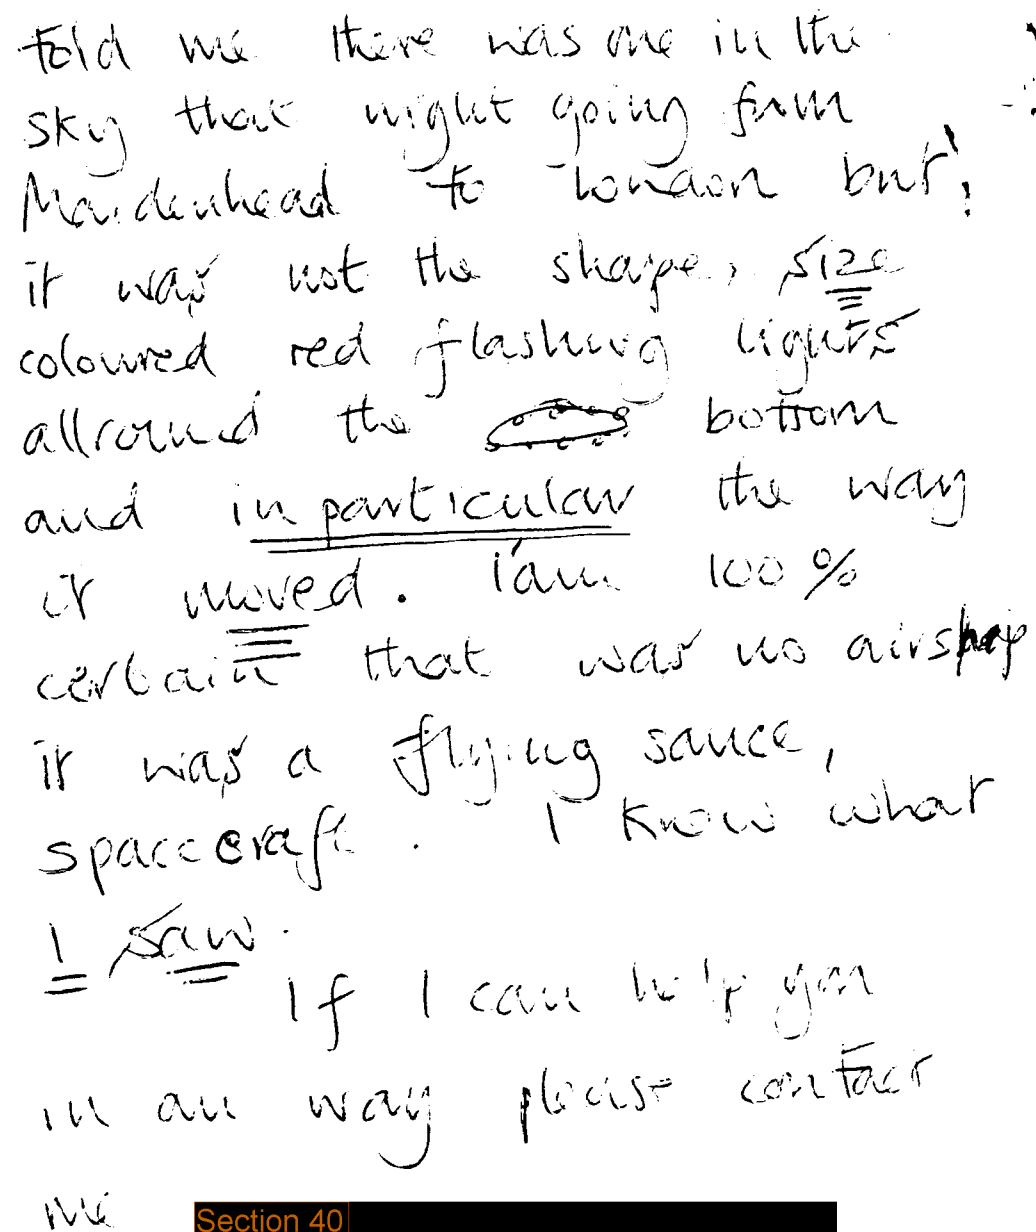 told me there was one in the
sky that night going from
Maidenhead to London but,
it was not the shape, size
coloured red flashing lights
allround the bottom
and in particular the way
it moved. I'am 100%
certain that was no airship
it was a flying sauce,
spacecraft. I know what
I saw.
If I can help you
in an way please contact
me Section 40